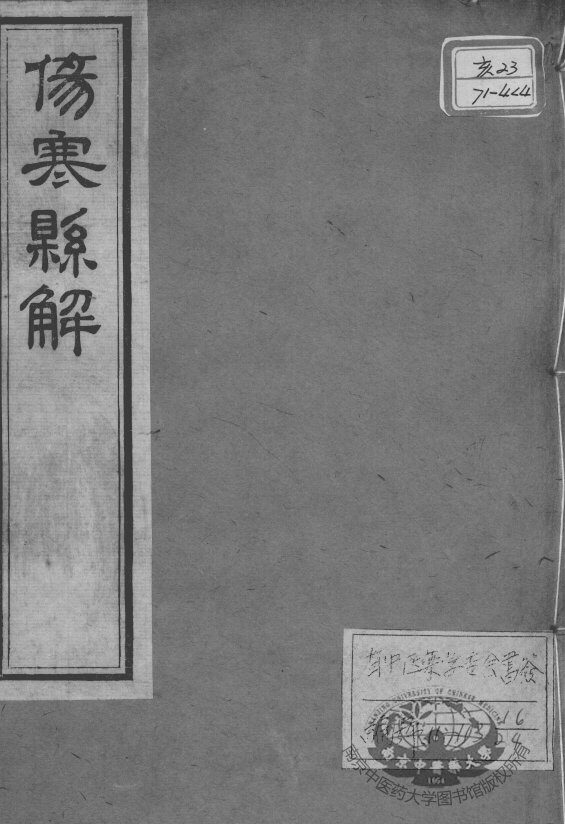 傷寒縣解
亥23
71-444
NANJING UNIVERSITY OF CHINESE MEDICINE
南京中医药大学
1954
南京中医药大学图书馆版权所有